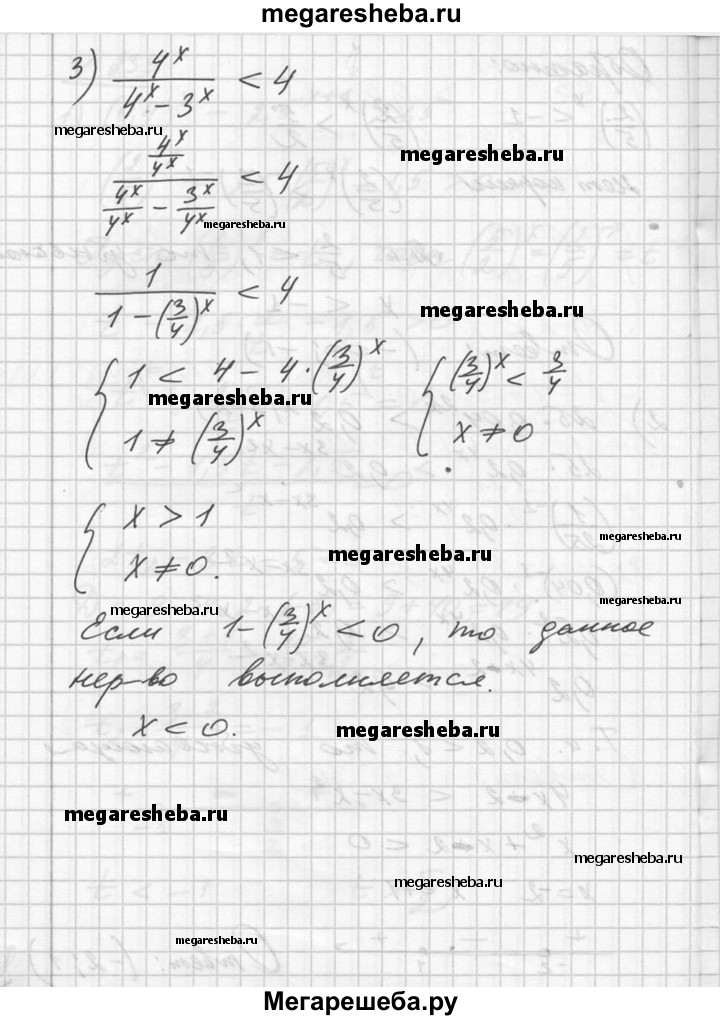 megaresheba.ru
3) 4^x / (4^x - 3^x) < 4
megaresheba.ru
(4^x / 4^x) / (4^x / 4^x - 3^x / 4^x) < 4
megaresheba.ru
megaresheba.ru
1 / (1 - (3/4)^x) < 4
megaresheba.ru
{ 1 < 4 - 4 · (3/4)^x { (3/4)^x < 3/4
megaresheba.ru
1 ≠ (3/4)^x x ≠ 0
{ x > 1
megaresheba.ru
megaresheba.ru
x ≠ 0.
megaresheba.ru
megaresheba.ru
Если 1 - (3/4)^x < 0, то данное
нер-во выполняется.
x < 0.
megaresheba.ru
megaresheba.ru
megaresheba.ru
megaresheba.ru
megaresheba.ru
Мегарешеба.ру